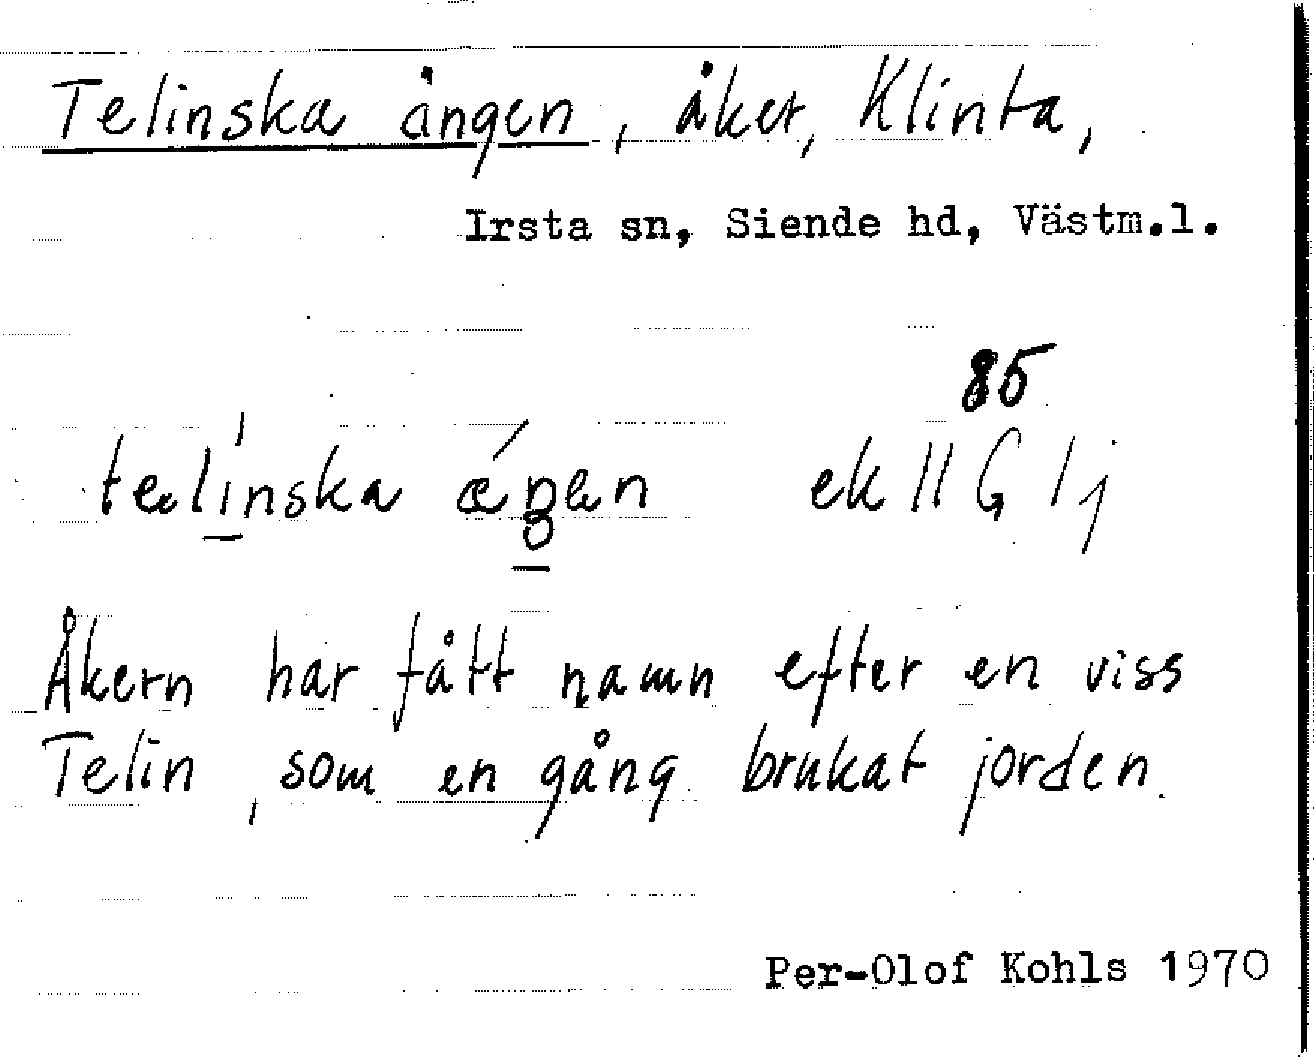 Telinska ängen, åker, Klinta,
Irsta sn, Siende hd, Västm.l.
85
ek 11 G 1 j
Åkern har fått namn efter en viss
Telin, som en gång brukat jorden.
Per-Olof Kohls 1970